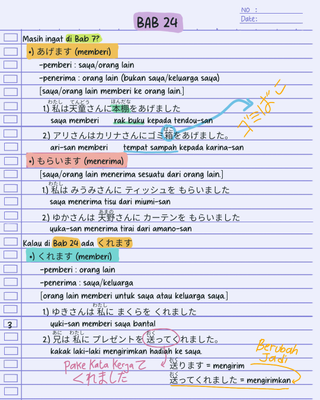 BAB 24
NO :
Date:
Masih ingat di Bab 7?
•) あげます (memberi)
-pemberi : saya/orang lain
-penerima : orang lain (bukan saya/keluarga saya)
[saya/orang lain memberi ke orang lain.]
わたし てんどう ほんだな
1) 私は天童さんに本棚をあげました
saya memberi rak buku kepada tendou-san
ゴミばこ
2) アリさんはカリナさんにゴミ箱をあげました。
ari-san memberi tempat sampah kepada karina-san
•) もらいます (menerima)
[saya/orang lain menerima sesuatu dari orang lain.]
わたし
1) 私は みうみさんに ティッシュを もらいました
saya menerima tisu dari miumi-san
あまの
2) ゆかさんは 天野さんに カーテンを もらいました
yuka-san menerima tirai dari amano-san
Kalau di Bab 24 ada くれます
•) くれます (memberi)
-pemberi : orang lain
-penerima : saya/keluarga
[orang lain memberi untuk saya atau keluarga saya.]
わたし
1) ゆきさんは 私に まくらを くれました
3
yuki-san memberi saya bantal
あに わたし おく
2) 兄は 私に プレゼントを 送ってくれました。
kakak laki-laki mengirimkan hadiah ke saya.
Berubah Jadi
Pake Kata Kerja て くれました
おく
送ります = mengirim
おく
送ってくれました = mengirimkan